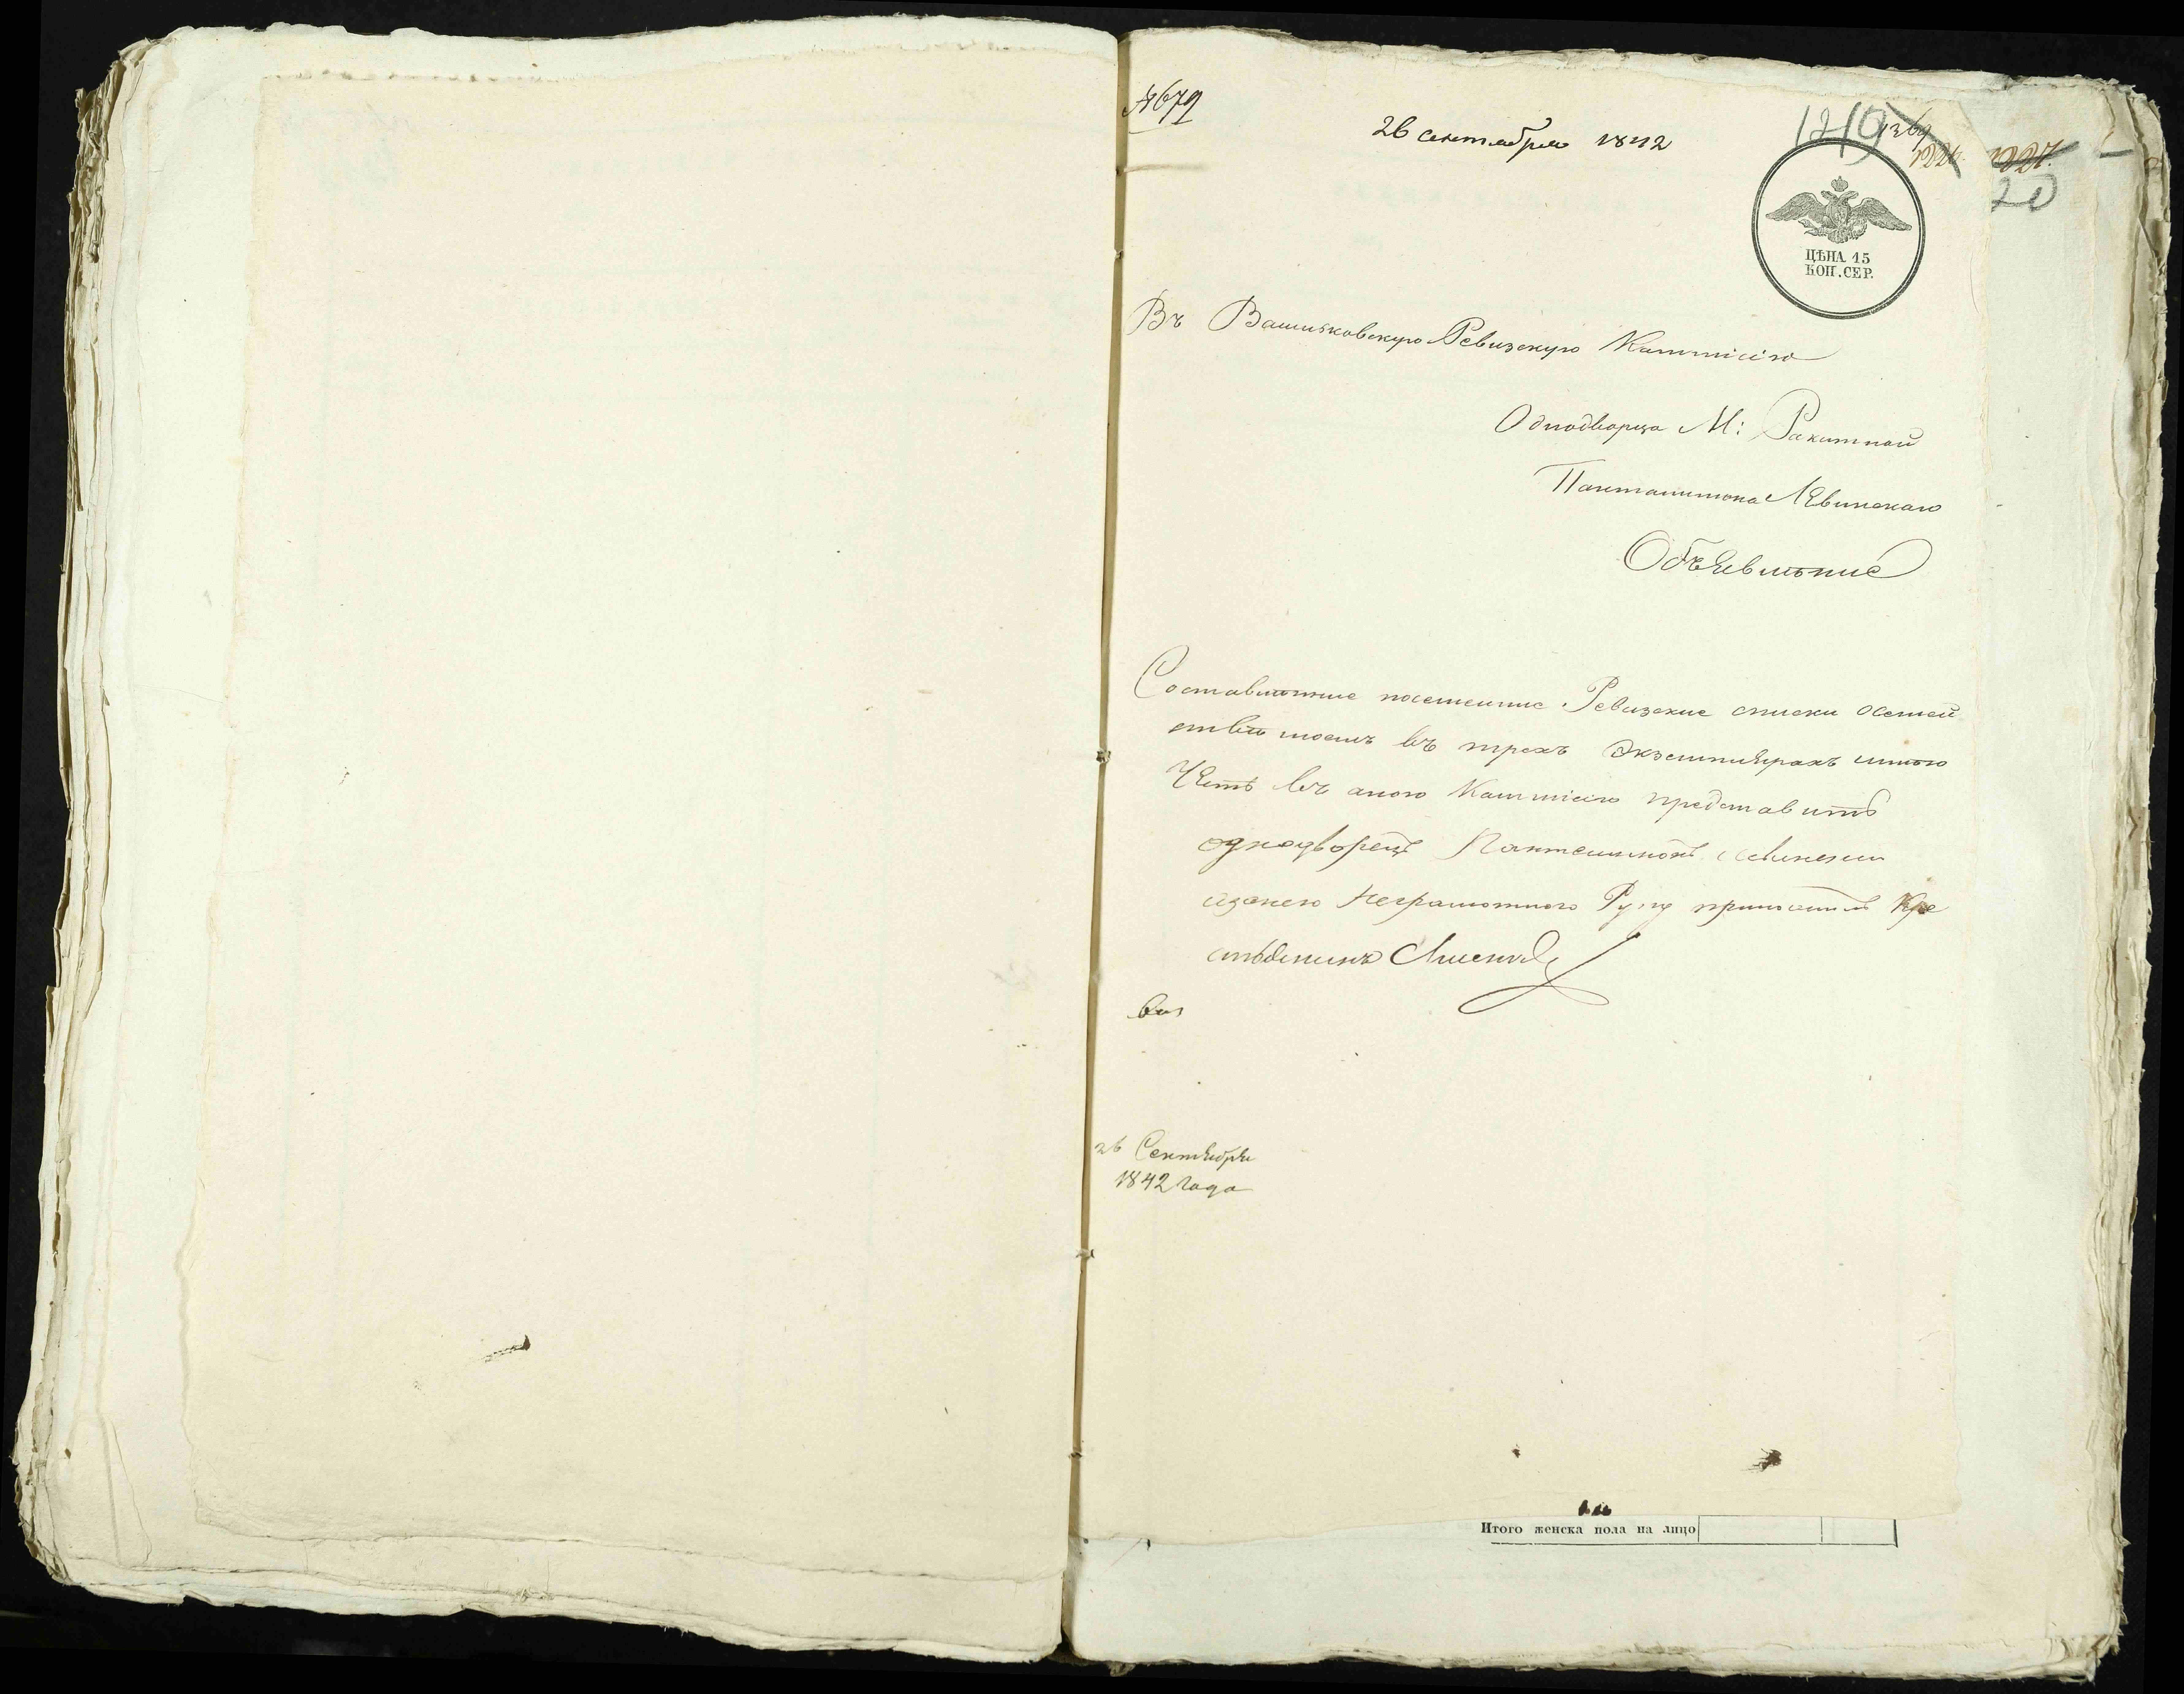 № 679
26 сентября 1842
1219
1369
20
ЦѢНА 15
КОП. СЕР.
Въ Васильковскую Ревизскую Коммисiю
Однодворца М: Ракитной
Пантилимона Левинскаго
Объявление
Составленные Ревизские списки осемей
стве моемъ въ трехъ Экземплярахъ имею
Честь въ оную Коммисiю представить
однодворец Пантелимонъ Левинский
азанего неграмотного Руку приложилъ Кре
стьянинъ
26 Сентября
1842 года
Итого женска пола на лицо